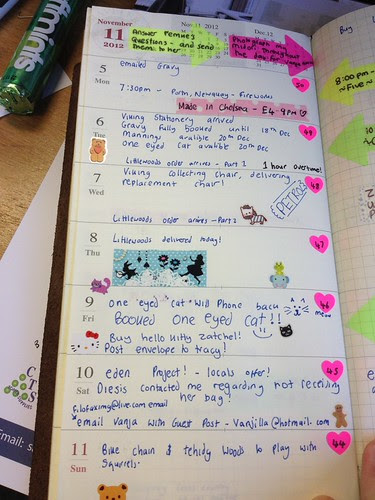 ftmints
November
11
2012
Nov 11, 2012
Dec. 12
Answer Pemney
Questions - and send
them to her
Photograph my
midori throughout
the day for
Buy
5
Mon
emailed Gravy
50
7:30pm - Porn, Newquay - Fireworks
8:00 pm -
~Five~
Made in Chelsea - E4 9pm
6
Tue
Viking Stationery arrived
Gravy fully booked until 18th Dec
49
Manning available 20th Dec
one eyed cat avalible 20th Dec
Littlewoods order arrives - Part 1
1 hour overtime!
7
Wed
Viking collecting chair, delivering
replacement chair!
48
PETROL
Littlewoods order arrives - Part 2
8
Thu
Littlewoods delivered today!
47
9
Fri
one eyed cat will Phone back
46
meow
Booked one eyed cat!!
Buy hello kitty zatchel!
Post envelope to tracy!
10
Sat
eden Project! - locals offer!
45
Diesis contacted me regarding not receiving
her bag!
filofaxmy@live.com email
email vanja with Guest Post - Vanjilla@hotmail.com
11
Sun
Blue chain & tehidy woods to play with
44
Squirrels.
CTS
SUPPLIES
Email: s